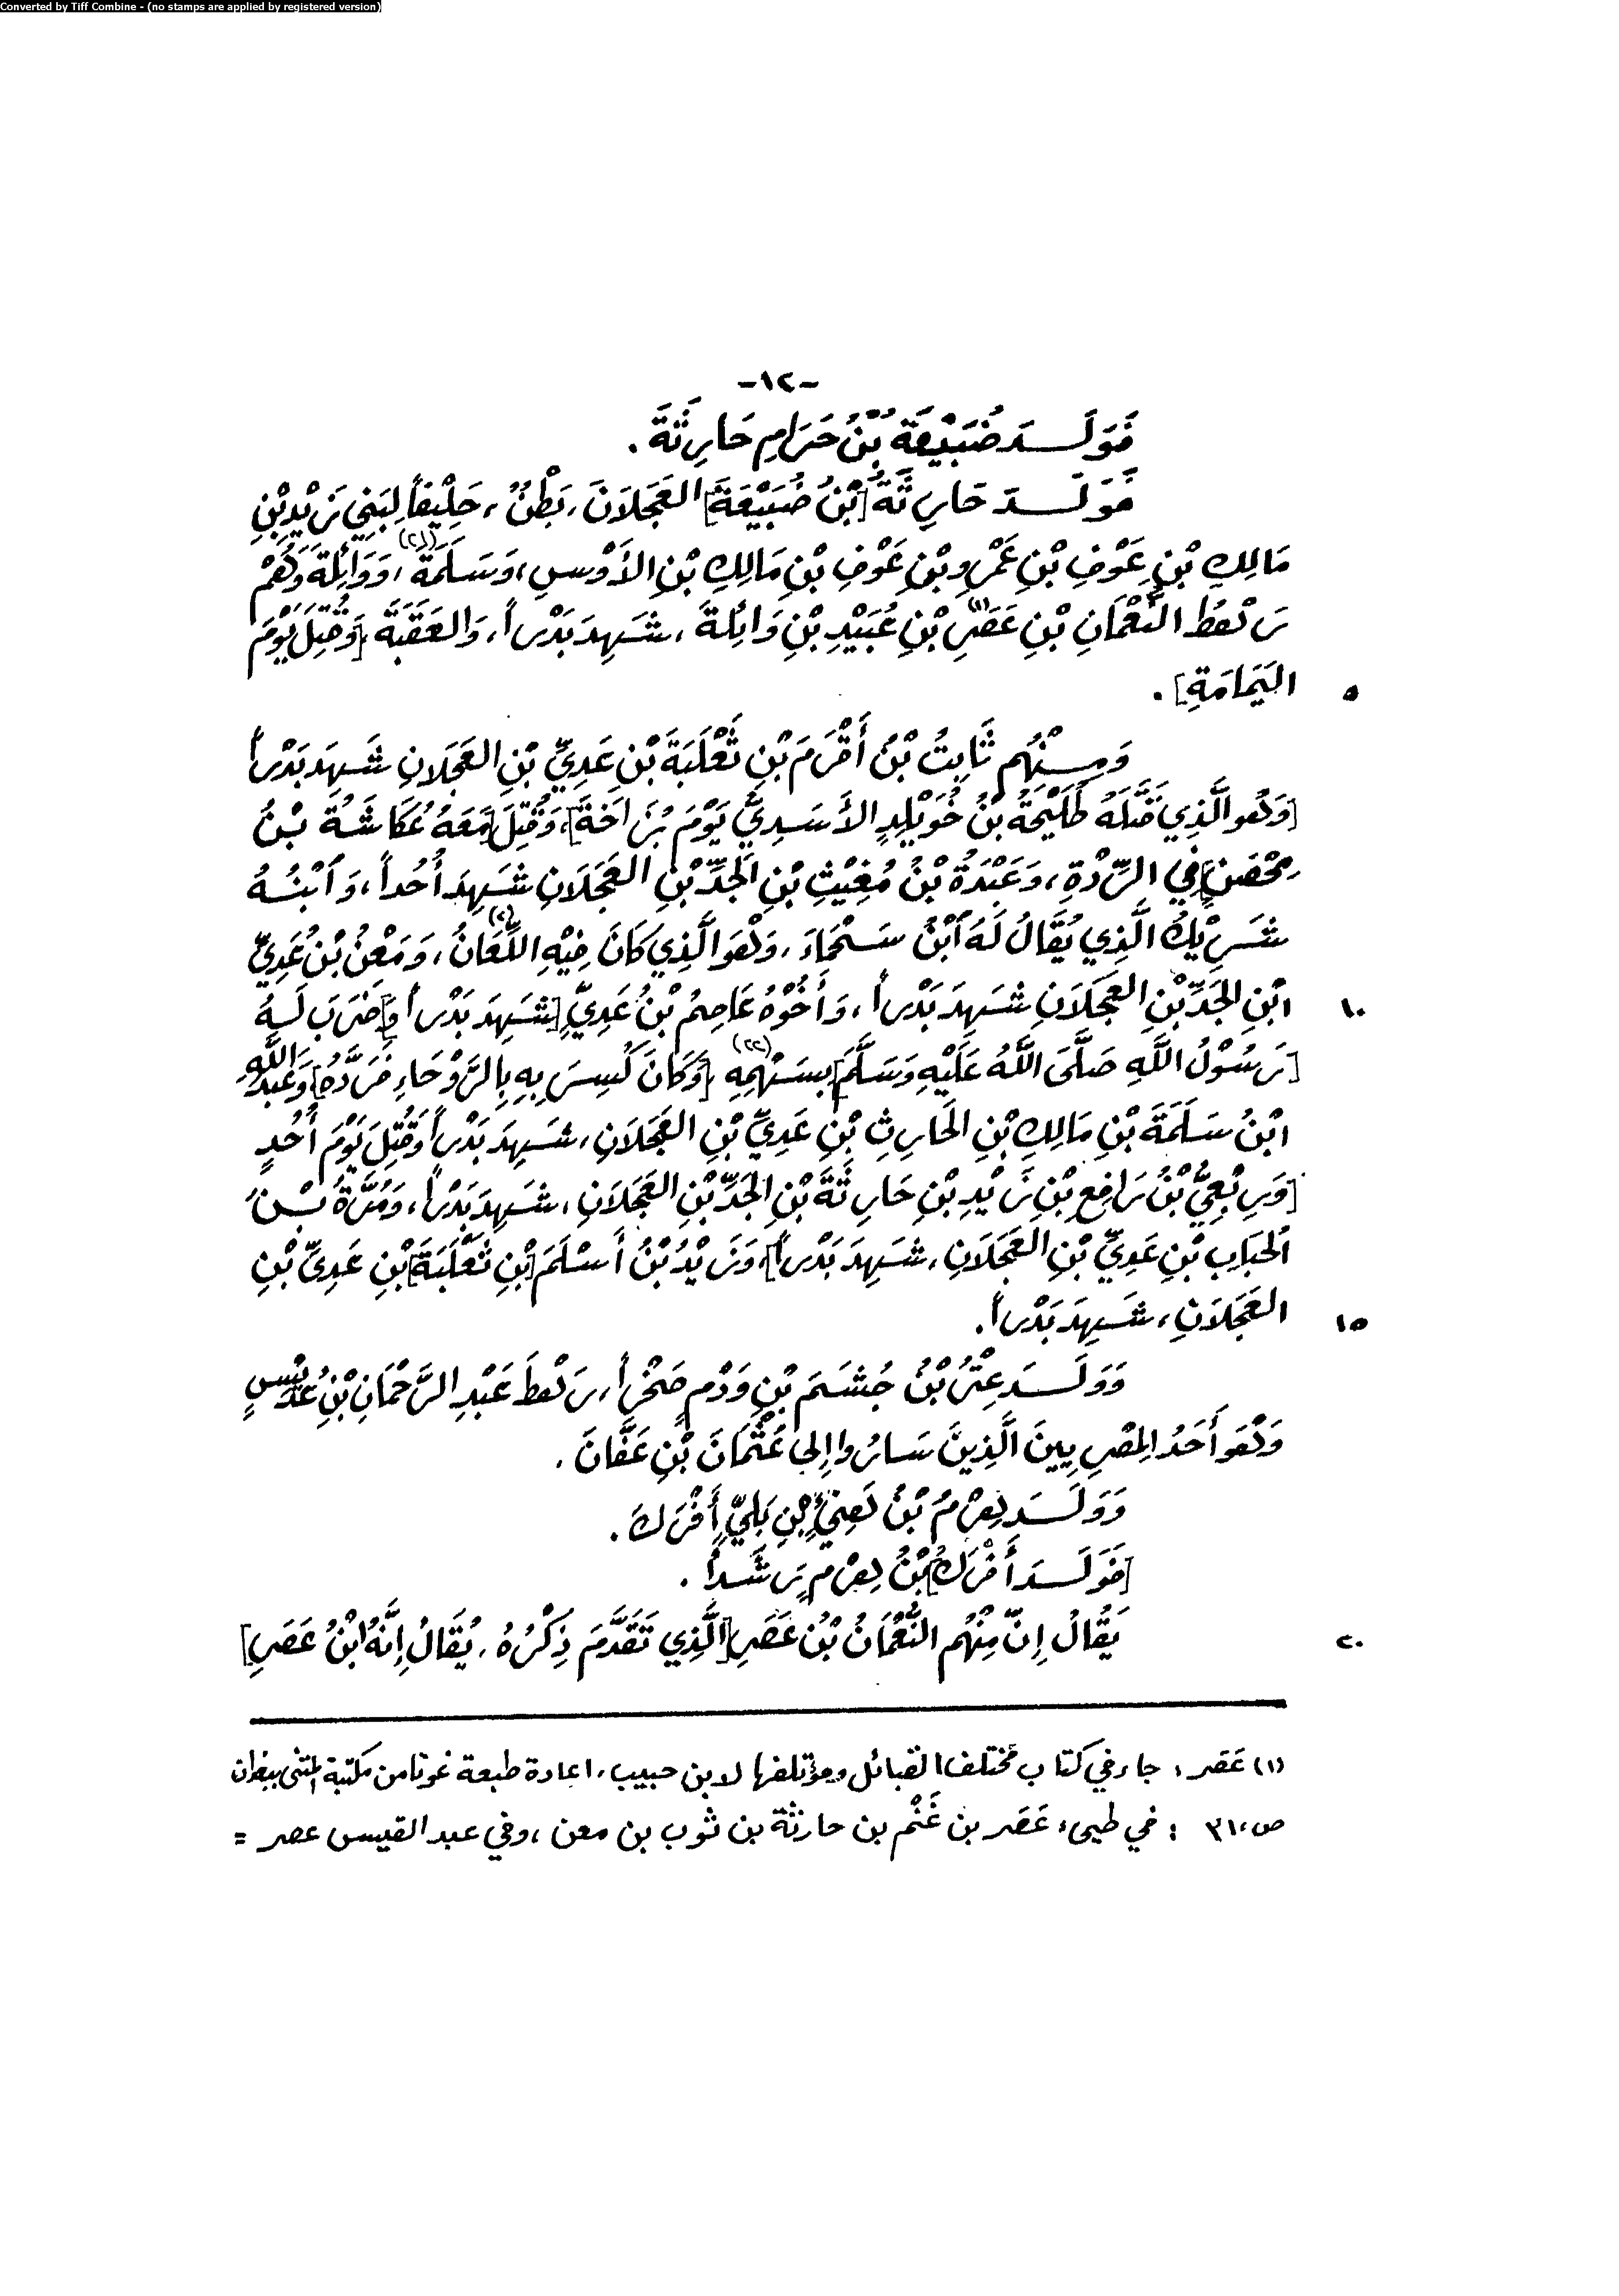 Converted by Tiff Combine - (no stamps are applied by registered version)
-١٢-
فَوَلَدَ ضُبَيْعَةُ بْنُ حَرَامٍ حَارِثَةَ .
فَوَلَدَ حَارِثَةُ [بْنُ ضُبَيْعَةَ] العَجْلَانَ، بَطْنٌ، حَلِيْفاً لِبَنِي زَيْدِ بْنِ
مَالِكِ بْنِ عَوْفِ بْنِ عَمْرِو بْنِ عَوْفِ بْنِ مَالِكِ بْنِ الأَوْسِ، وَسَلَمَةَ (٢١)، وَوَائِلَةَ وَهُمْ
رَهْطُ النُّعْمَانِ بْنِ عَصَرِ (١) بْنِ عُبَيْدِ بْنِ وَائِلَةَ، شَهِدَ بَدْراً، وَالعَقَبَةَ، [وَقُتِلَ يَوْمَ
٥ اليَمَامَةِ] .
وَمِنْهُم ثَابِتُ بْنُ أَقْرَمَ بْنِ ثَعْلَبَةَ بْنِ عَدِيِّ بْنِ العَجْلَانِ شَهِدَ بَدْراً
[وَهُوَ الَّذِي قَتَلَهُ طُلَيْحَةُ بْنُ خُوَيْلِدٍ الأَسَدِيُّ يَوْمَ بُزَاخَةَ]، وَقُتِلَ [مَعَهُ عُكَاشَةُ بْنُ
مِحْصَنٍ] فِي الرِّدَّةِ، وَعَبْدَةُ بْنُ مُغِيْثِ بْنِ الجَدِّ بْنِ العَجْلَانِ شَهِدَ أُحُداً، وَابْنُهُ
شَرِيْكُ الَّذِي يُقَالُ لَهُ ابْنُ سَحْمَاءَ، وَهُوَ الَّذِي كَانَ فِيْهِ اللِّعَانُ (٢)، وَمَعْنُ بْنُ عَدِيِّ
١٠ ابْنِ الجَدِّ بْنِ العَجْلَانِ شَهِدَ بَدْراً، وَأَخُوْهُ عَاصِمُ بْنُ عَدِيٍّ [شَهِدَ بَدْراً وَ] ضَرَبَ لَهُ
[رَسُوْلُ اللَّهِ صَلَّى اللَّهُ عَلَيْهِ وَسَلَّمَ] بِسَهْمِهِ (٢٢) [وَكَانَ كُسِرَ بِهِ بِالرَّوْحَاءِ فَرَدَّهُ] وَعَبْدُ اللَّهِ
ابْنُ سَلَمَةَ بْنِ مَالِكِ بْنِ الحَارِثِ بْنِ عَدِيِّ بْنِ العَجْلَانِ، شَهِدَ بَدْراً وَقُتِلَ يَوْمَ أُحُدٍ
[وَرِبْعِيُّ بْنُ رَافِعِ بْنِ زَيْدِ بْنِ حَارِثَةَ بْنِ الجَدِّ بْنِ العَجْلَانِ، شَهِدَ بَدْراً، وَمُرَّةُ بْنُ
الحُبَابِ بْنِ عَدِيِّ بْنِ العَجْلَانِ، شَهِدَ بَدْراً]، وَزَيْدُ بْنُ أَسْلَمَ [بْنِ ثَعْلَبَةَ] بْنِ عَدِيِّ بْنِ
١٥ العَجْلَانِ، شَهِدَ بَدْراً.
وَوَلَدَ عِتْرُ بْنُ جُشَمَ بْنِ وَدْمٍ صَخْراً، رَهْطَ عَبْدِ الرَّحْمَانِ بْنِ عُدَيْسٍ
وَهُوَ أَحَدُ المِصْرِيينَ الَّذِينَ سَارُوا إِلَى عُثْمَانَ بْنِ عَفَّانَ .
وَوَلَدَ هِرْمُ بْنُ هَنِيِّ بْنِ بَلِيٍّ أَفْرَكَ .
[فَوَلَدَ أَفْرَكُ] بْنُ هِرْمٍ رَشَداً .
٢٠ يُقَالُ إِنَّ مِنْهُم النُّعْمَانُ بْنُ عَصَرِ [الَّذِي تَقَدَّمَ ذِكْرُهُ، يُقَالُ إِنَّهُ ابْنُ عَصَرِ]
(١) عَصَر: جاء في كتاب مختلف القبائل ومؤتلفها لابن حبيب، اعادة طبعة غوتا من مكتبة المثنى ببغداد
ص، ٣١ : في طيىء عَصَر بن غَنْم بن حارثة بن ثوب بن معن، وفي عبد القيس عصر =